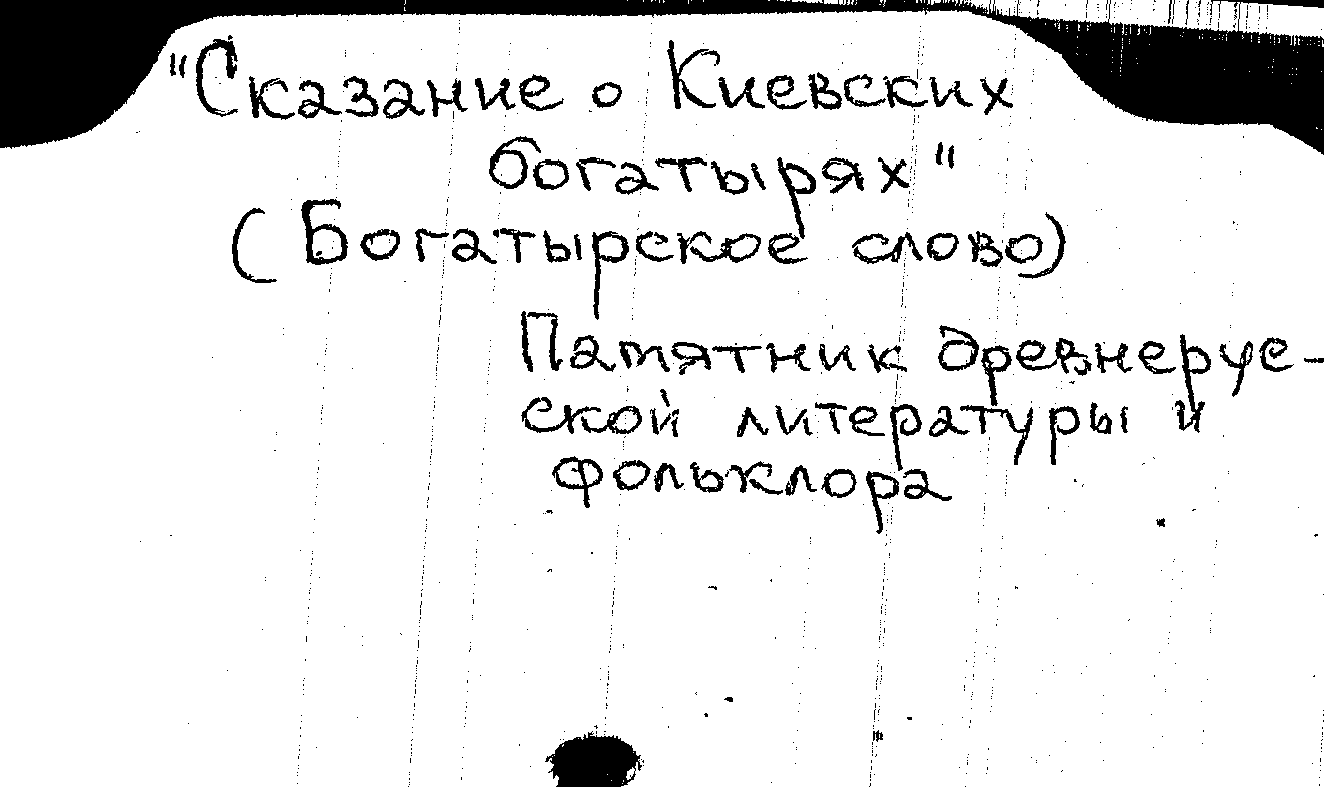 "Сказание о Киевских
богатырях"
(Богатырское слово)
Памятник древнерус-
ской литературы и
фольклора